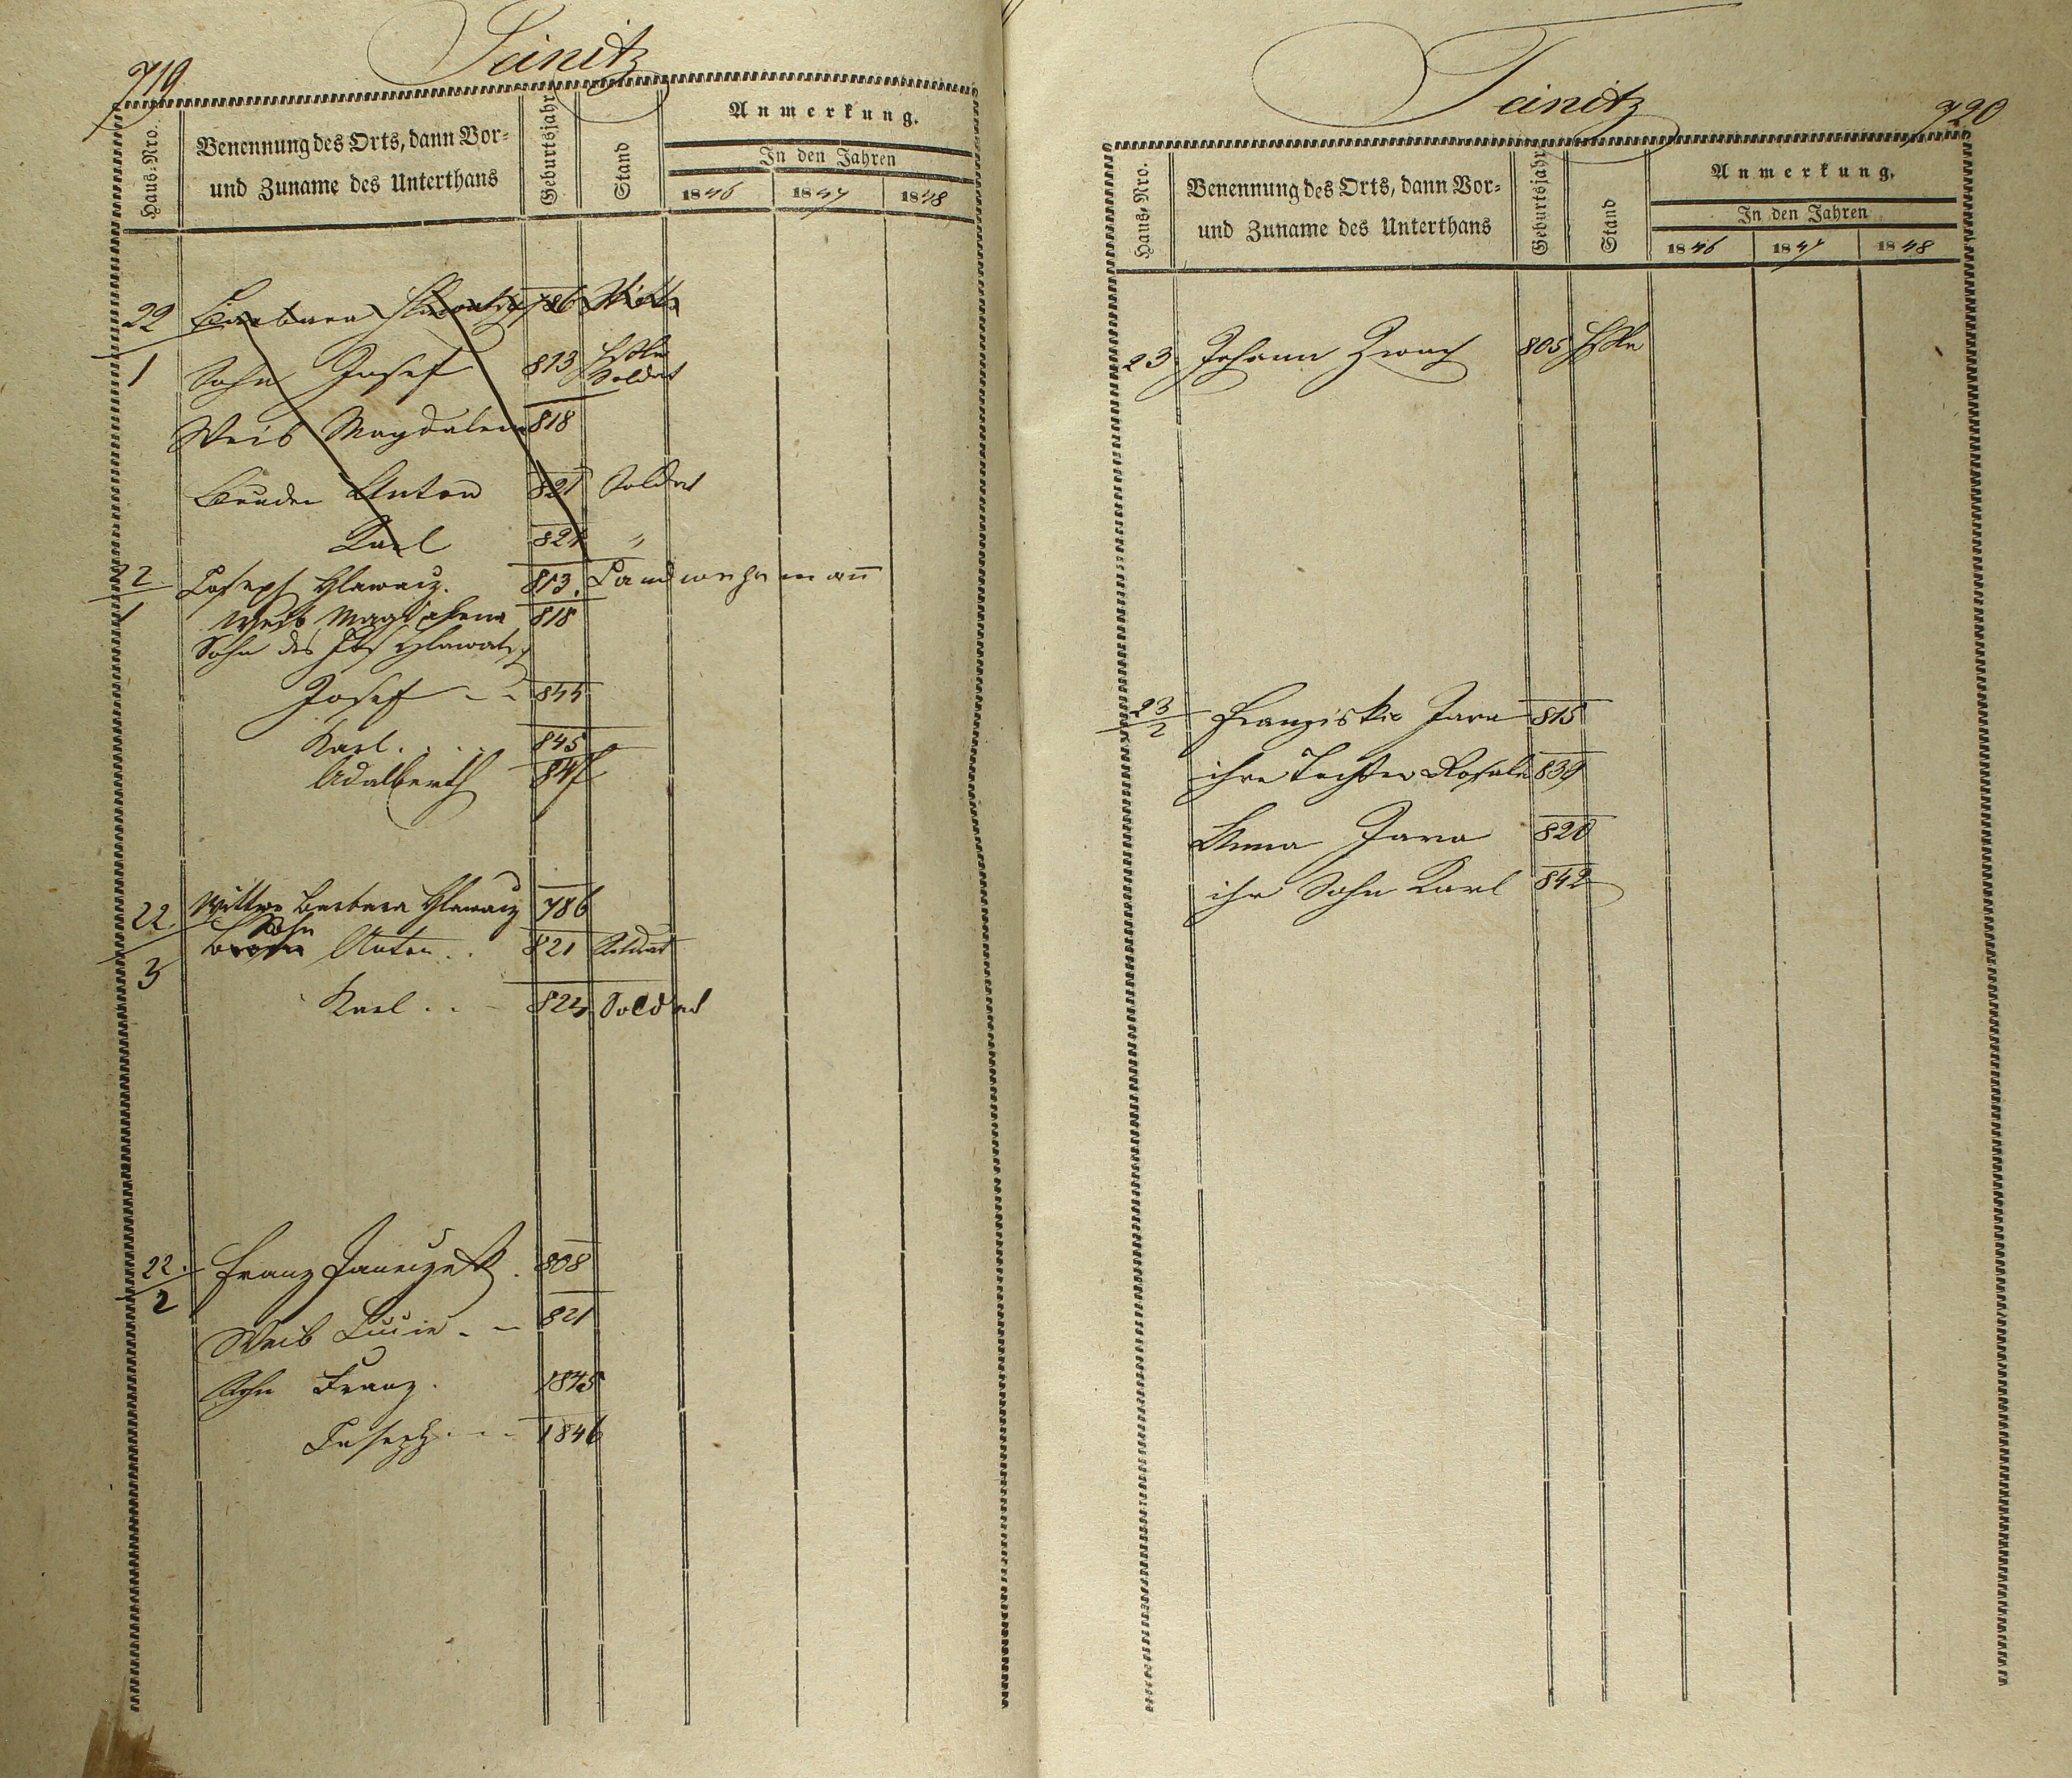 719
Teinitz
Haus-Nro.
Benennung des Orts, dann Vor-
und Zuname des Unterthans
Geburtsjahr
Stand
Anmerkung.
In den Jahren
1846 1847 1848
22/1 Barbara 786
Sohn Josef 813 Soldat
Weib Magdalena 818
Bruder Anton 821 Soldat
Karl 824 "
22/1 Joseph Hlawacz. 813. Landwehrmann
Weib Magdalena 818
Sohn des Jos Hlawatz
Josef 844
Karl. 845
Adalberth 847
22/3 Wittwe Barbara Hlawacz 786
Sohn
Bruder Anton 821 Soldat
Karl 824 Soldat
22/2 Franz Janeczek 808
Weib Lucie 821
Sohn Franz. 1845
Joseph 1846
Teinitz
720
Haus-Nro.
Benennung des Orts, dann Vor-
und Zuname des Unterthans
Geburtsjahr
Stand
Anmerkung.
In den Jahren
1846 1847 1848
23 Johann 805
23/2 Franziska Jara 815
ihre Tochter Rosalia 839
Anna Jara 820
ihr Sohn Karl 842